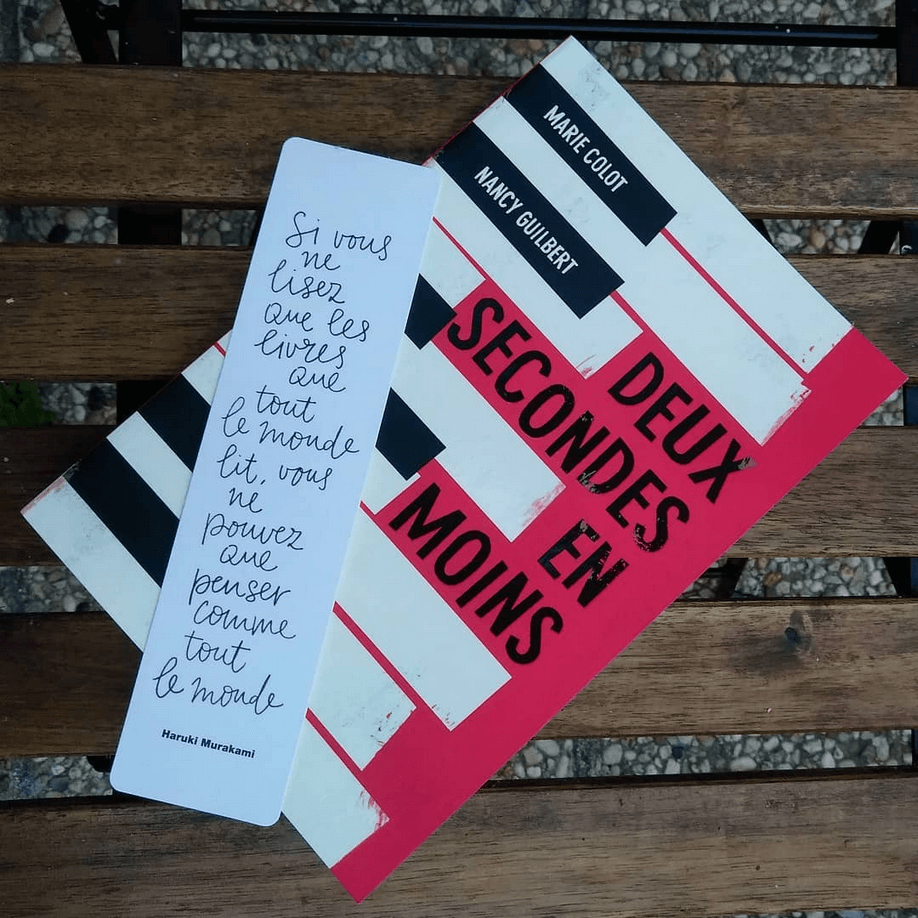 Si vous
ne
lisez
que les
livres
que
tout
le monde
lit, vous
ne
pouvez
que
penser
comme
tout
le monde
Haruki Murakami
MARIE COLOT
NANCY GUILBERT
DEUX
SECONDES
EN
MOINS